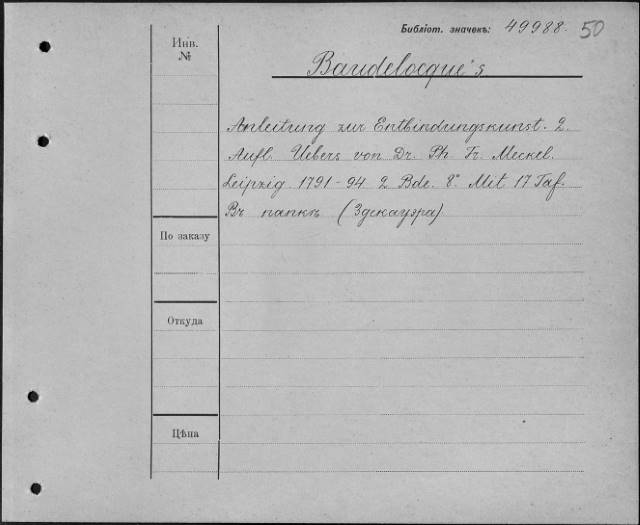 Библіот. значекъ: 49988. 50
Инв.
№
Baudelocque's
Anleitung zur Entbindungskunst. 2.
Aufl. Uebers von Dr. Ph. Fr. Meckel.
Leipzig. 1791-94 2 Bde. 8° Mit 17 Taf.
Въ папкѣ (Здекауэра)
По заказу
Откуда
Цѣна